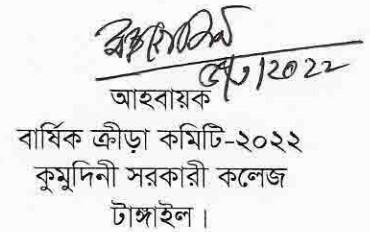 আহবায়ক
বার্ষিক ক্রীড়া কমিটি-২০২২
কুমুদিনী সরকারী কলেজ
টাঙ্গাইল।